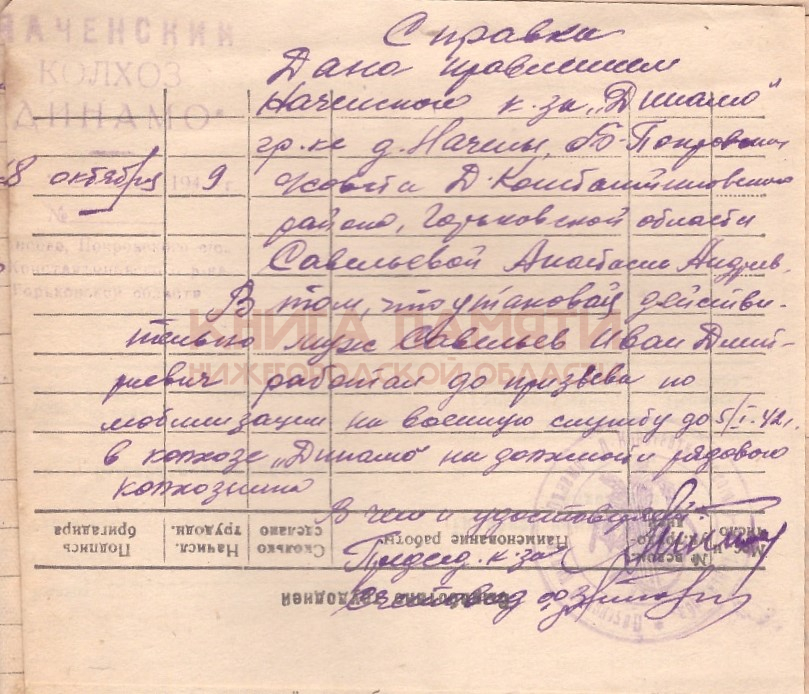 НАЧЕНСКИЙ
КОЛХОЗ
"ДИНАМО"
8 октября 194 9 г.
№
Покровского с/с.
Константиновского р-на
Горьковской области
Справка
Дана правлением
Наченского к-за „Динамо"
гр-ке д. Начены, Б-Покровского
с/совета Д-Константиновского
района, Горьковской области
Савельевой Анастасие Андреев.
В том, что у таковой действи-
тельно муж Савельев Иван Дмит-
риевич работал до призыва по
мобилизации на военную службу до 5/I-42 г.
в колхозе „Динамо" на должности рядового
колхозника
В чем и удостоверяет:
Председ. к-за
Счетовод
КНИГА ПАМЯТИ
НИЖЕГОРОДСКОЙ ОБЛАСТИ
Подпись бригадира
Начисл. трудодн.
Сколько сделано
Наименование работы
трудодней